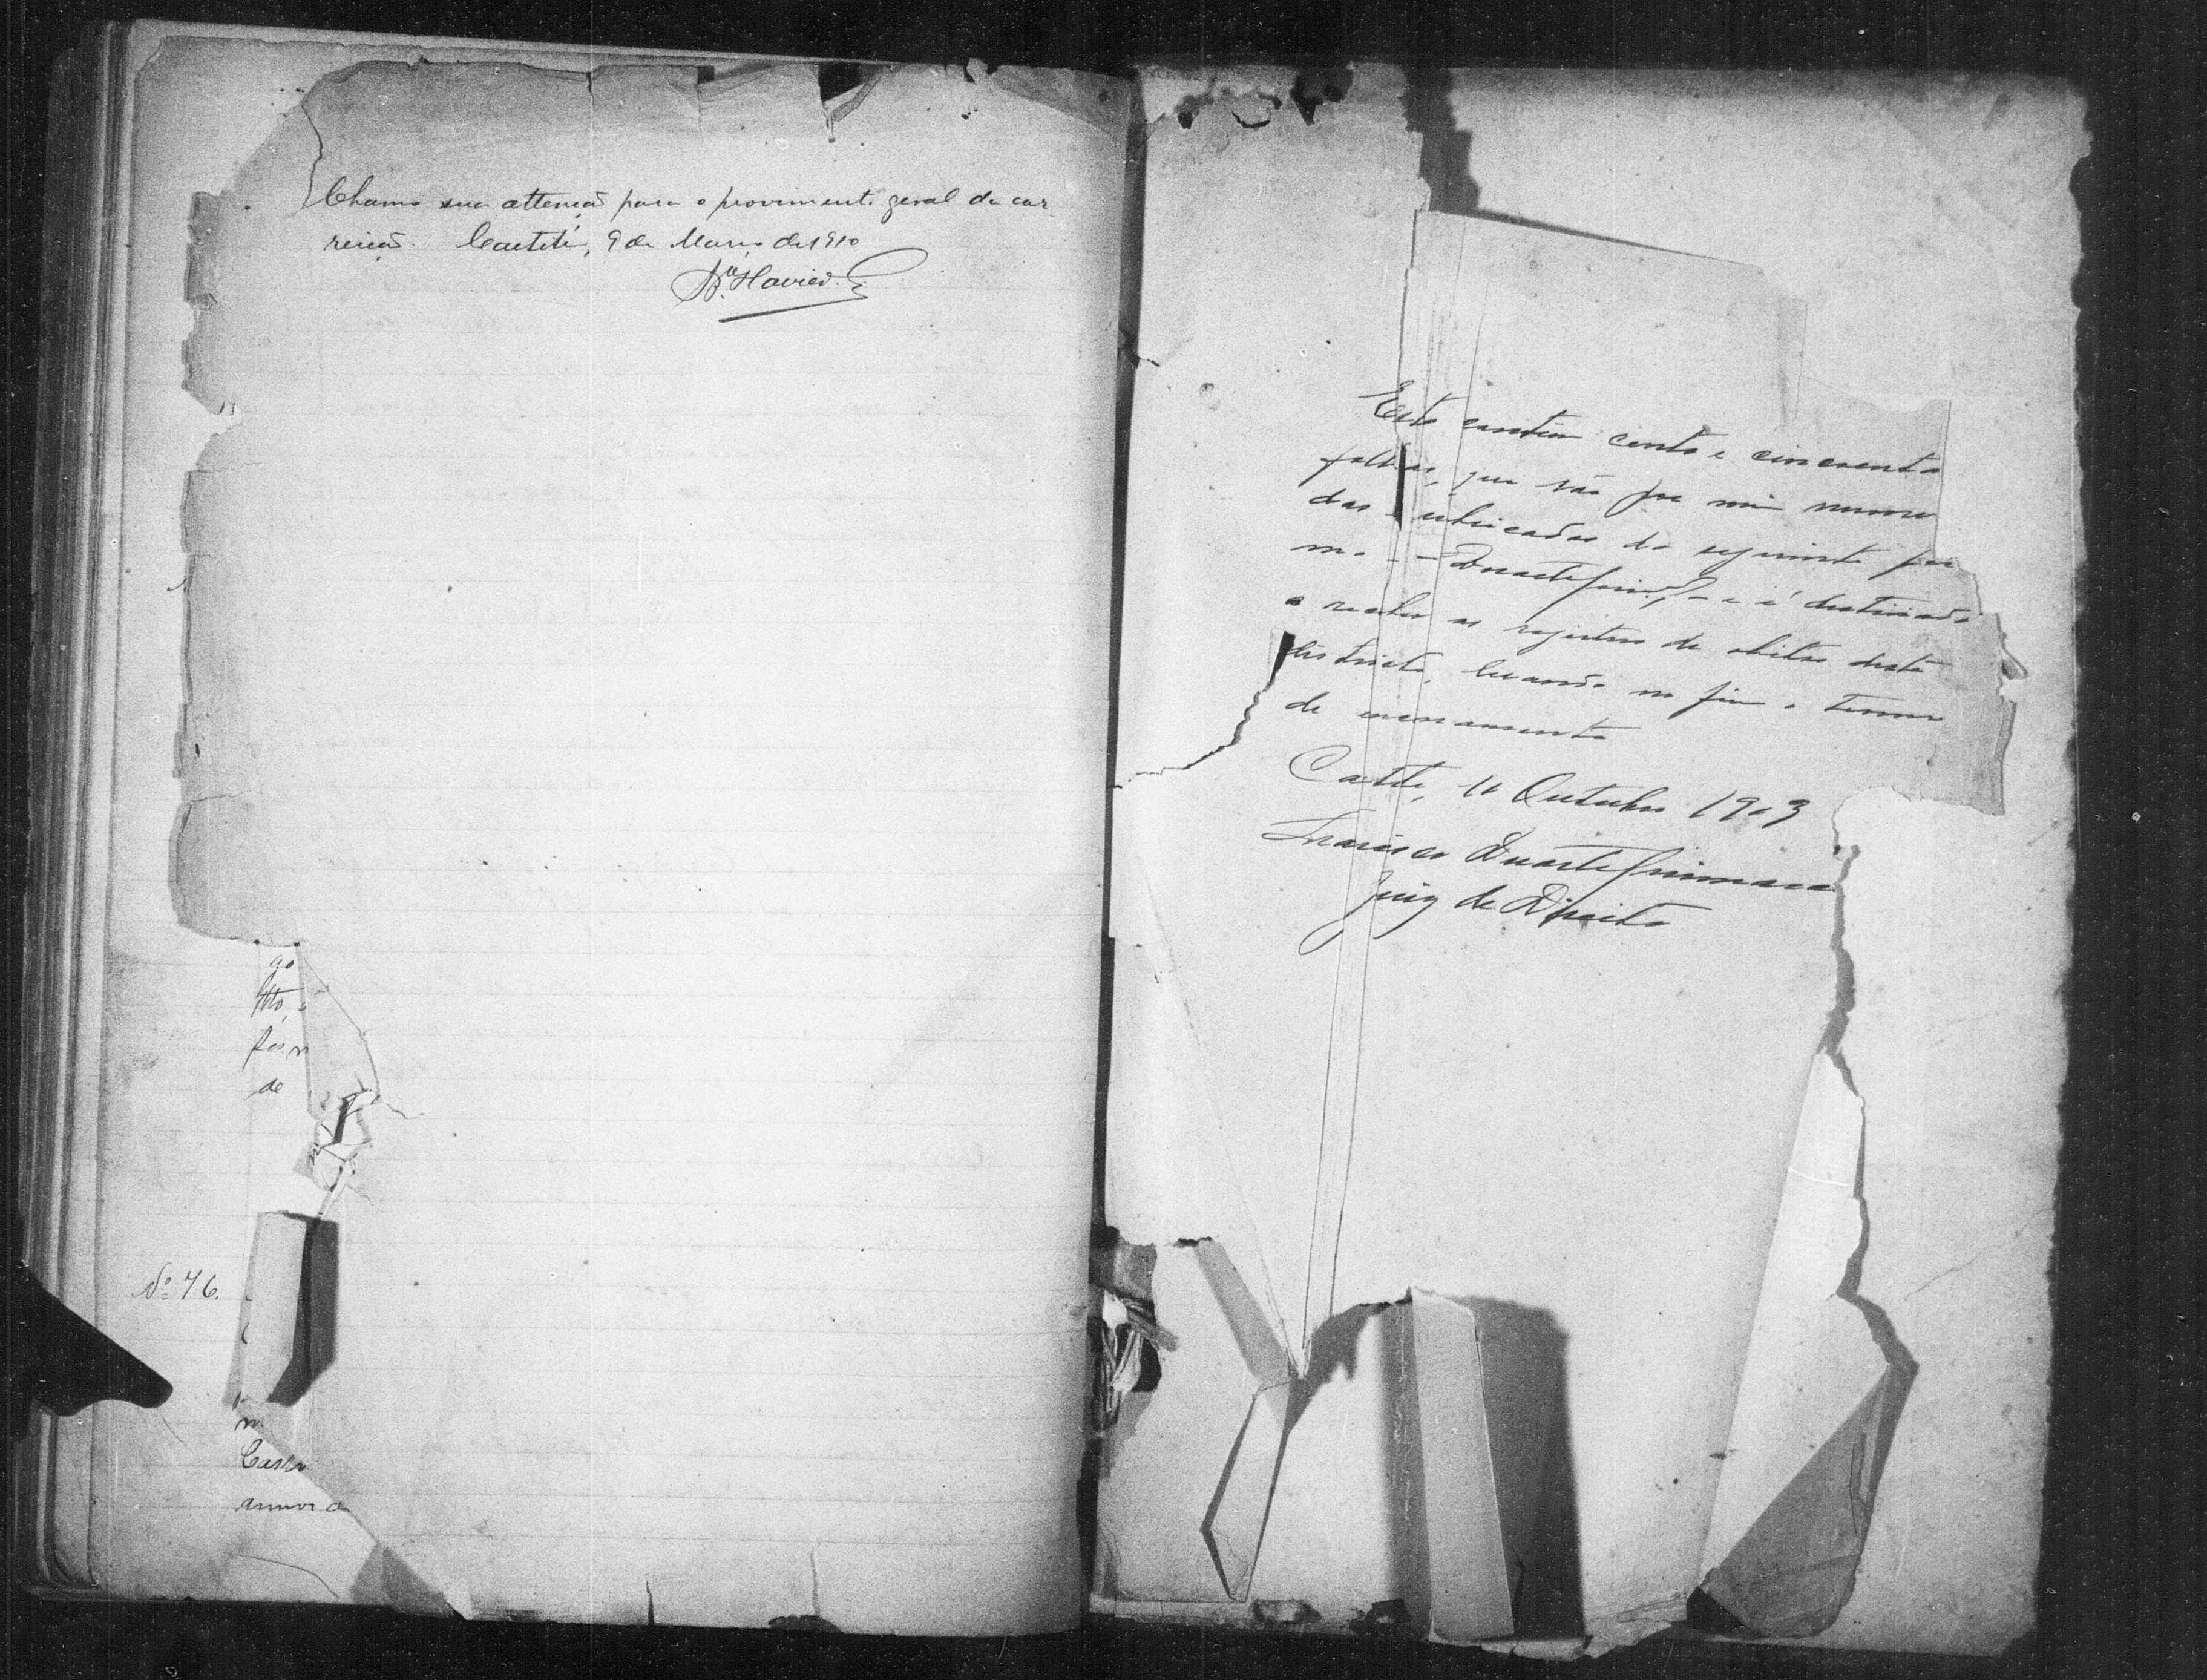 Chamo sua attenção para o provimento geral da cor
reição. Caetité, 9 de Março de 1910
13
go
tto, e
de
Nº 76.
m.
Este contem cento e cincoenta
folhas, que são por mim numera
das rubricadas da seguinte for
ma - DuarteGuim.es - e é destinado
a receber os registros de obitos deste
districto, levando no fim o termo
de encerramento
Caetté, 11 Outubro 1903
Francisco Duarte Guimarães
Juiz de Direito